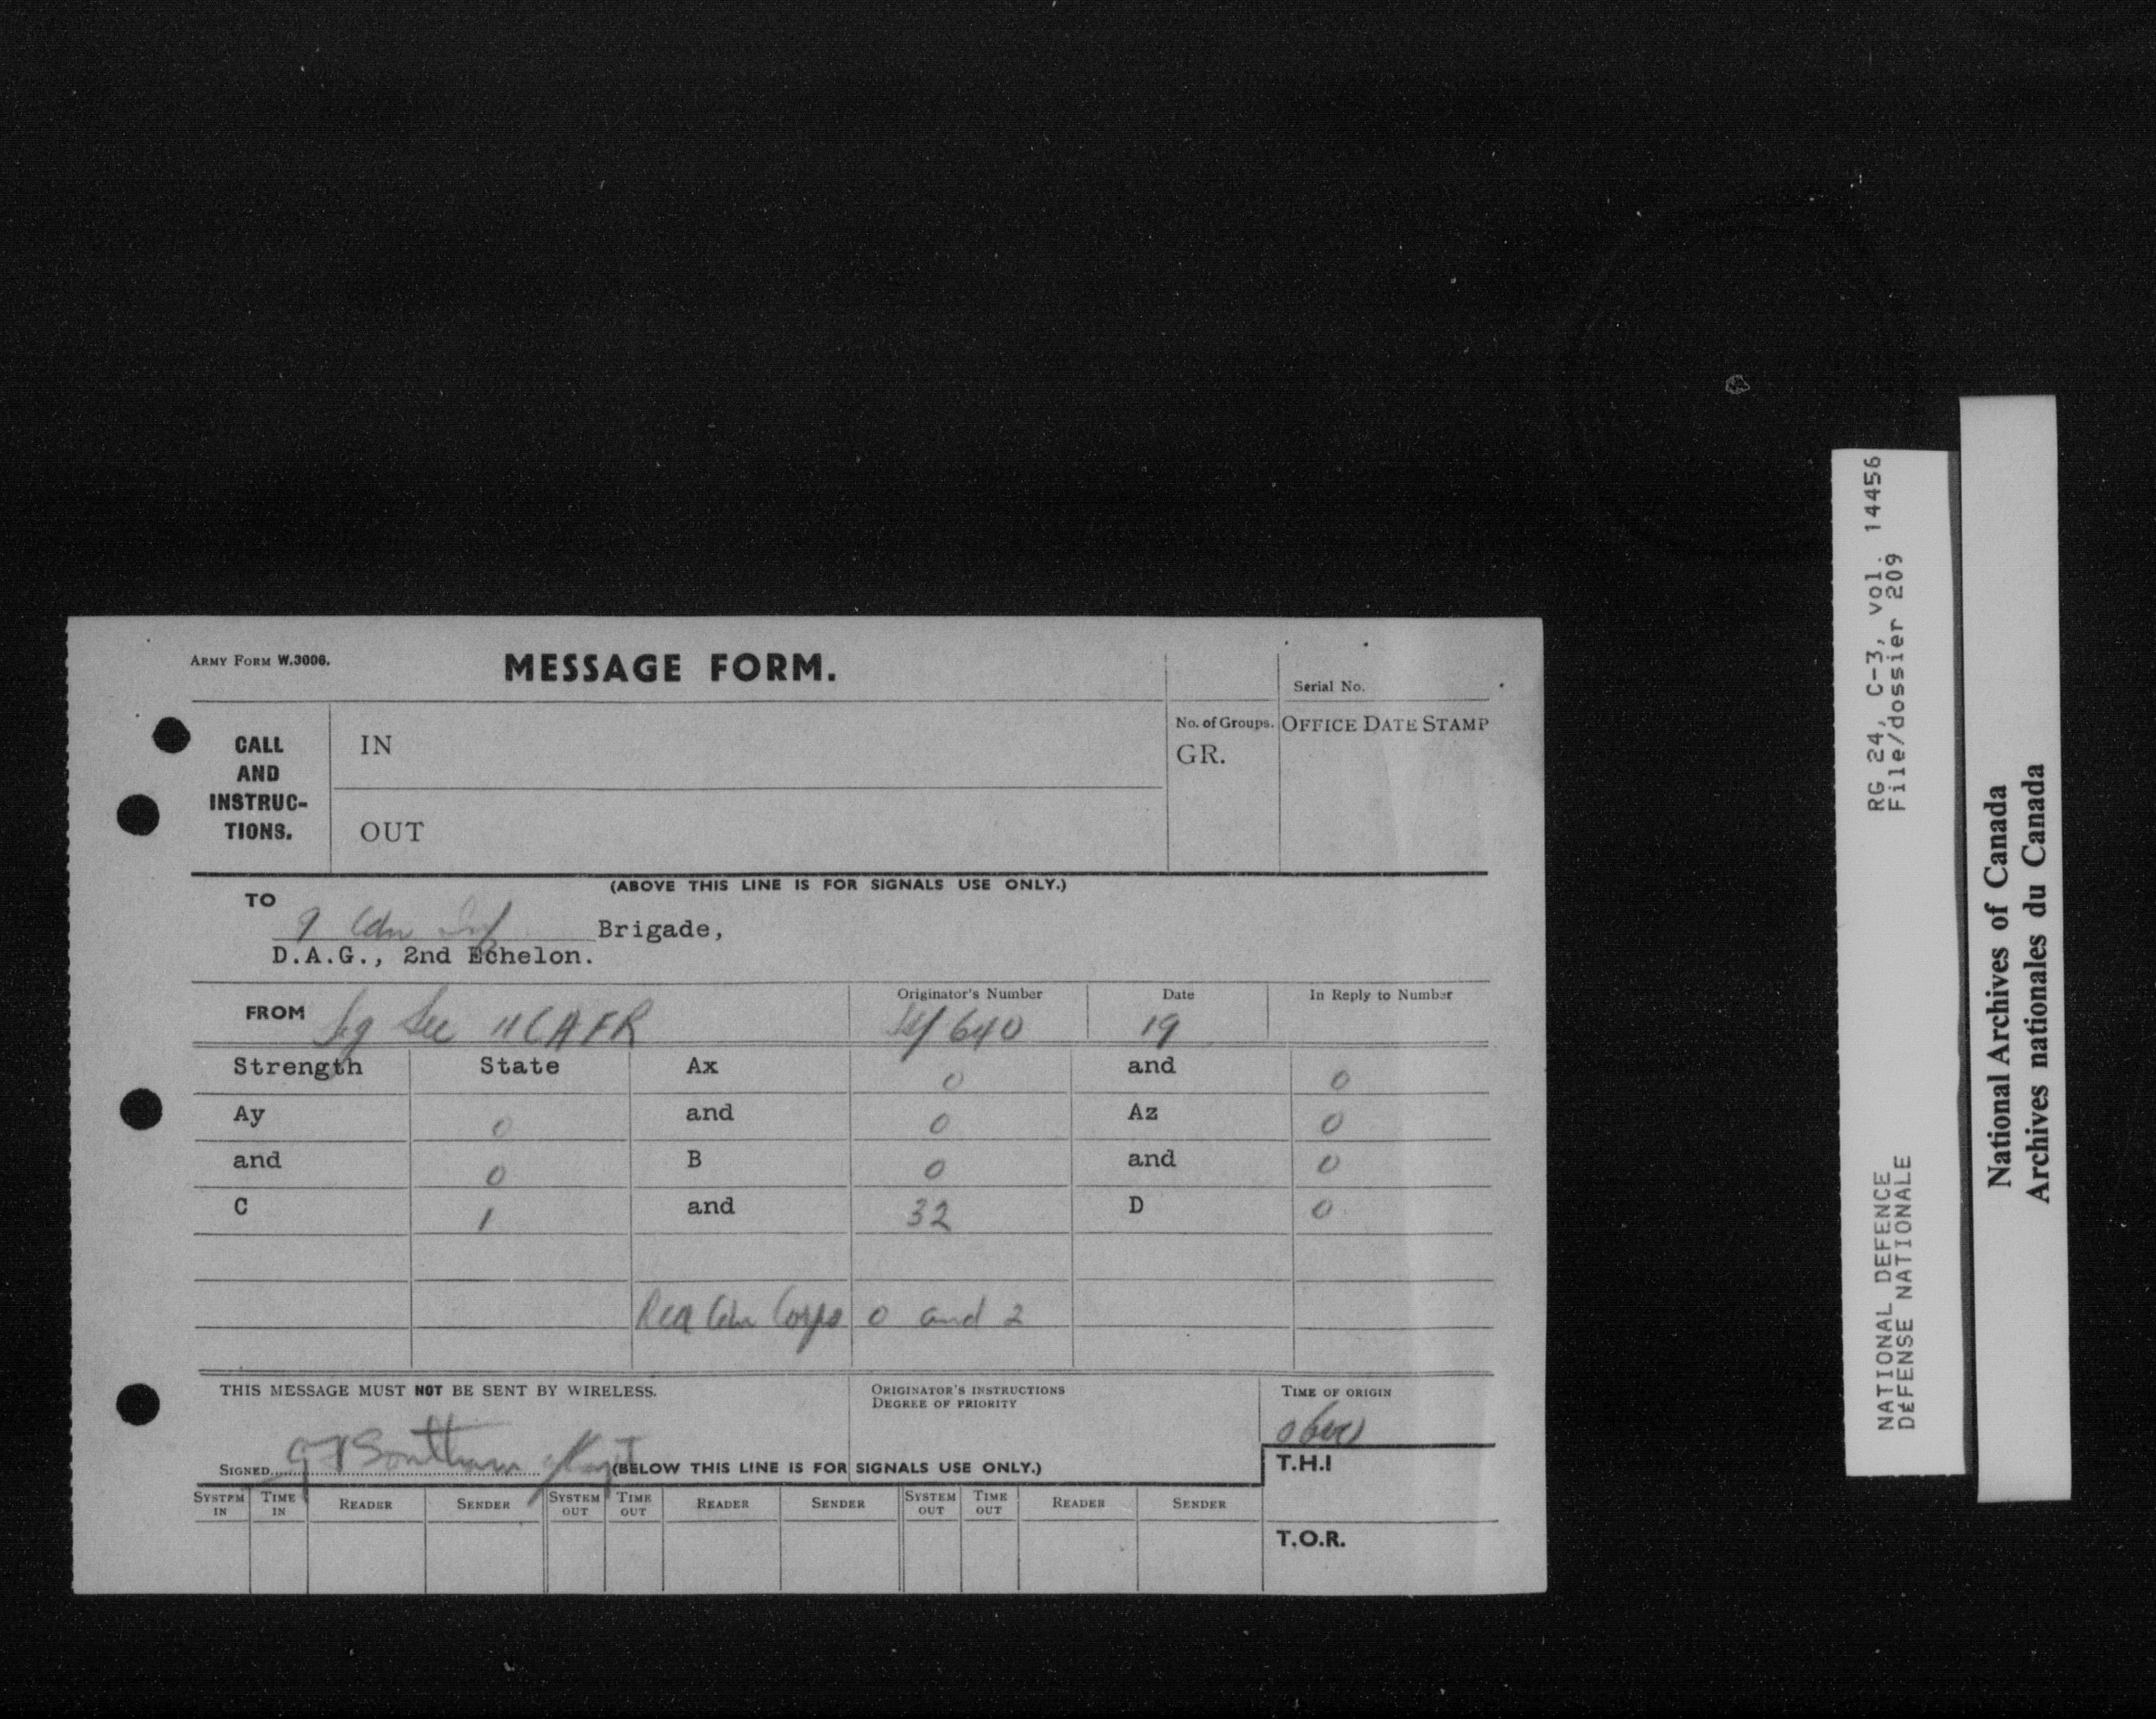 ARMY FORM W.3006.
MESSAGE FORM.
Serial No.
CALL AND INSTRUC-TIONS.
IN
OUT
No. of Groups.
GR.
OFFICE DATE STAMP
(ABOVE THIS LINE IS FOR SIGNALS USE ONLY.)
TO
9 Cdn Inf Brigade,
D.A.G., 2nd Echelon.
FROM Sig Sec 11 CAFR
Originator's Number
640
Date
19
In Reply to Number
Strength State Ax 0 and 0
Ay 0 and 0 Az 0
and 0 B 0 and 0
C 1 and 32 D 0
Rca Cdn Corps 0 and 2
THIS MESSAGE MUST NOT BE SENT BY WIRELESS.
ORIGINATOR'S INSTRUCTIONS
DEGREE OF PRIORITY
TIME OF ORIGIN
0600
SIGNED Southam
(BELOW THIS LINE IS FOR SIGNALS USE ONLY.)
T.H.I
SYSTEM IN TIME IN READER SENDER SYSTEM OUT TIME OUT READER SENDER SYSTEM OUT TIME OUT READER SENDER
T.O.R.
RG 24, C-3, vol. 14456
File/dossier 209
NATIONAL DEFENCE
DÉFENSE NATIONALE
National Archives of Canada
Archives nationales du Canada